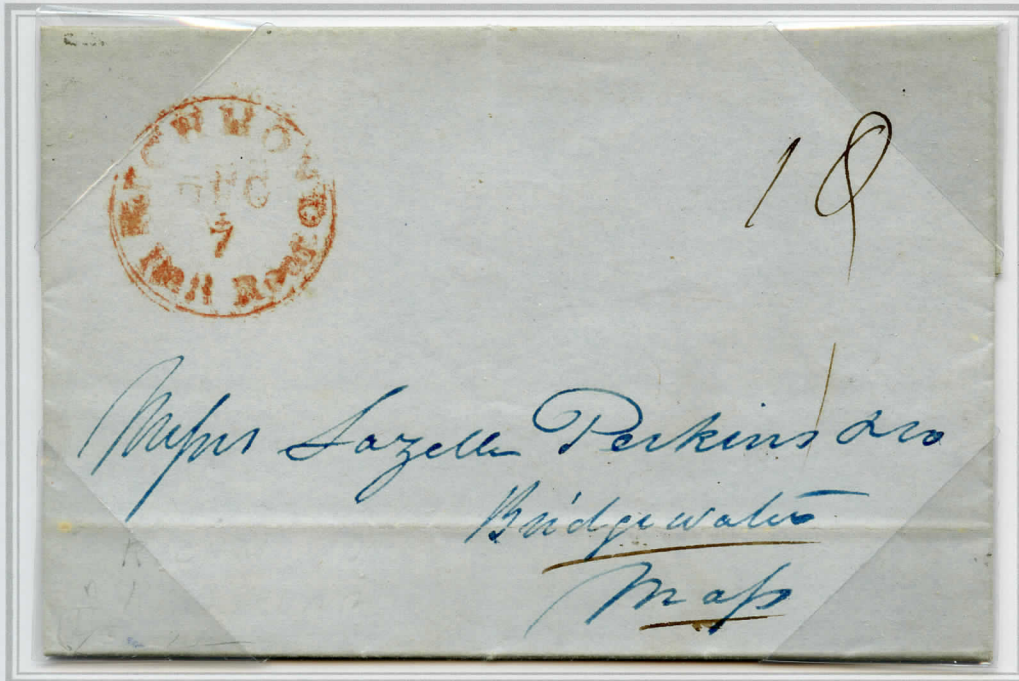 RICHMOND
7
Rail Road
18
Meſsrs Lazell Perkins & Co
Bridgewater
Maſs